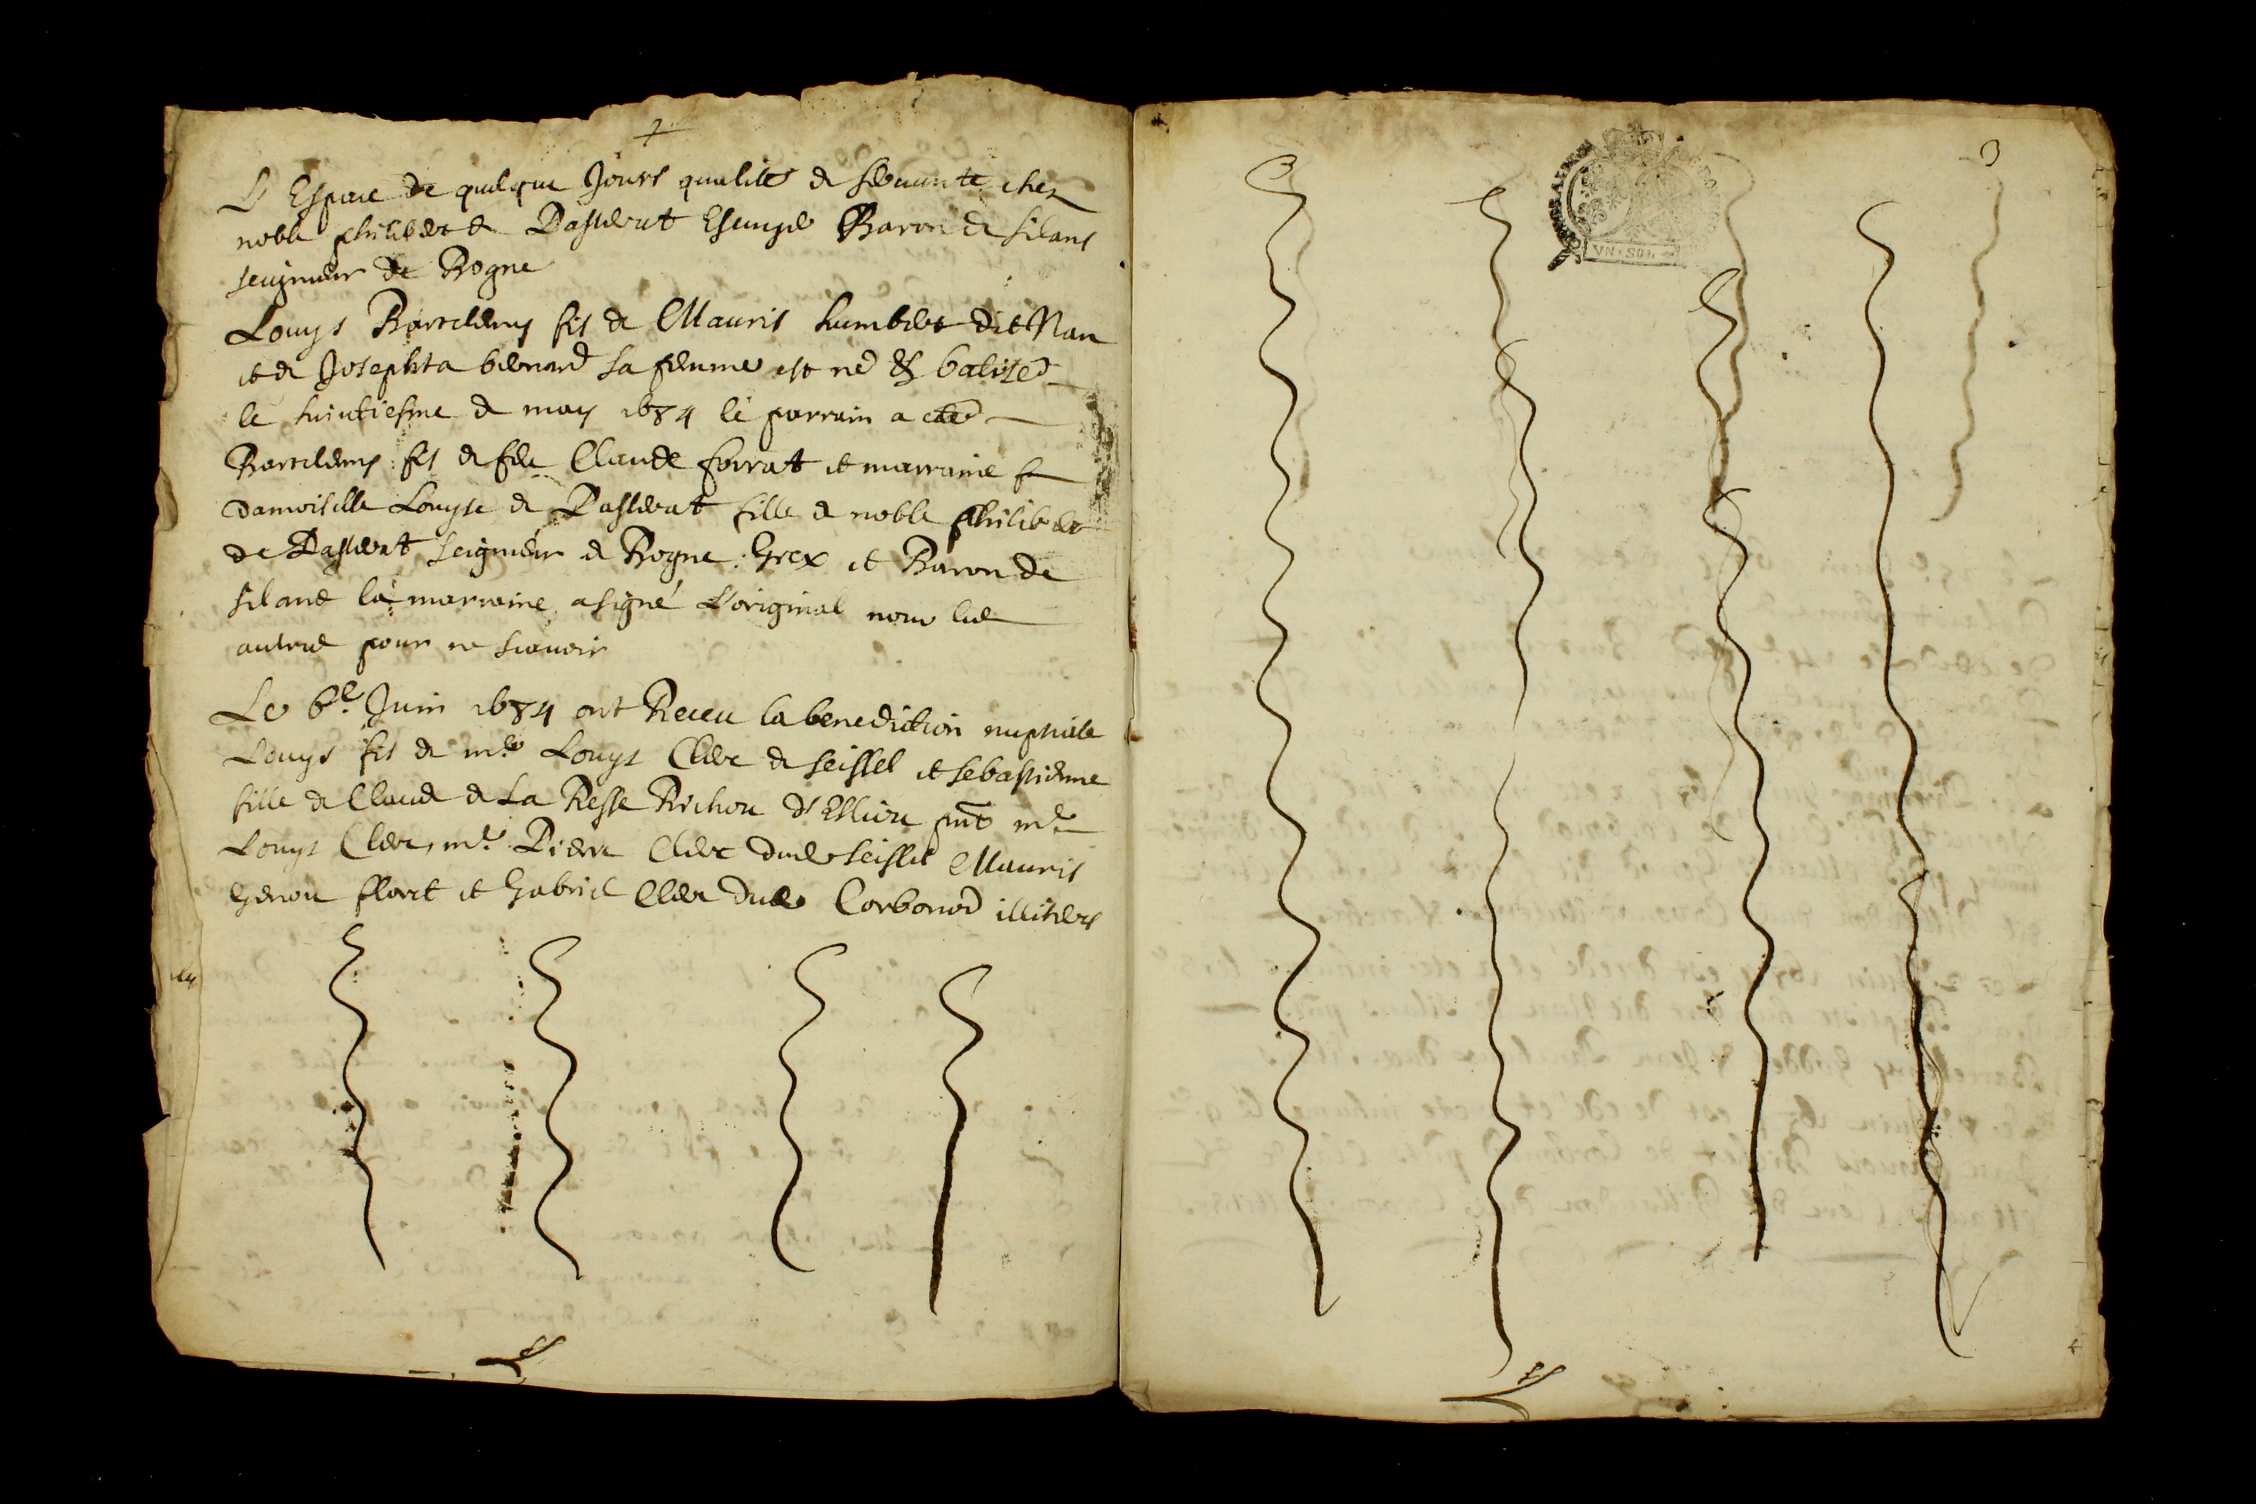 L'Espace de quelque Jours qualite de servante chez
noble philibert de Dasserat Escuyer Baron de silans
seigneur de Rogne
Louys Bartelemy fis de Mauris humbert dit Nan
et de Josephta bernard sa femme est né & batisé
le huictiesme de may 1684 le parrain a eté
Bartelemy fis de feu Claude forrat et marraine
damoiselle Louyse de Dasserat fille de noble philibert
de Dasserat seigneur de Rogne Grex et Baron de
silans la marraine a signé L'original non les
autres pour ne scavoir
Le 6e Juin 1684 ont Receu la benediction nuptiale
Louys fis de me Louys Clerc de seissel et sebastienne
fille de Claude de La Resse Richon d' pnt me
Louys Clerc, me Pierre Clerc dud seissel Mauris
floret et Gabriel Clerc dud Corbonod illiteres
3
VN·SOL